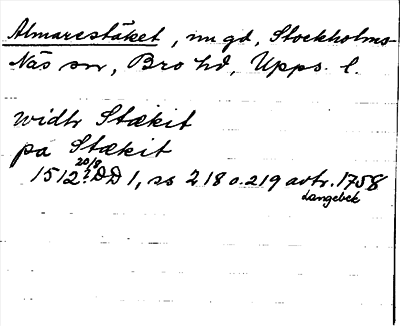 Almarestäket, nu gd, Stockholms-
Näs sn, Bro hd, Upps. l.
widh Stækit
pa Stækit
20/8
1512? DD 1, ss 218 o. 219 avtr. 1758
Langebek